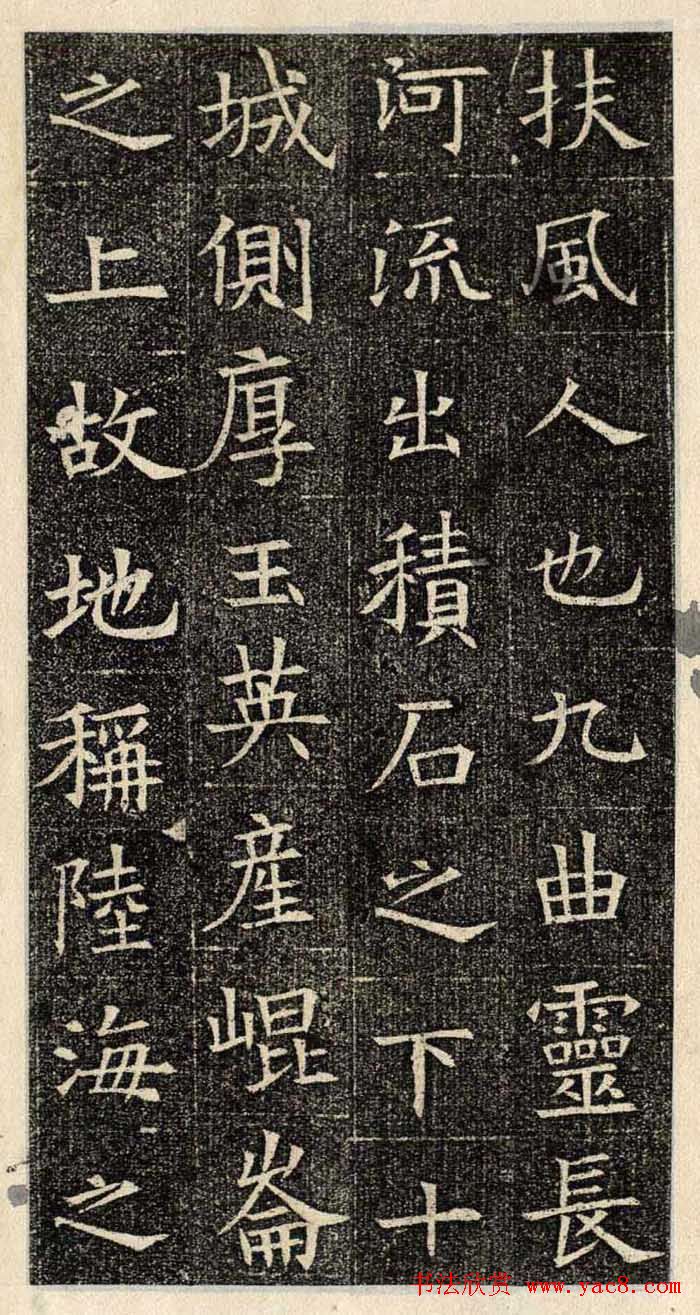 扶風人也九曲靈長
河流出積石之下十
城側厚玉英産崐崙
之上故地稱陸海之
书法欣赏 www.yac8.com